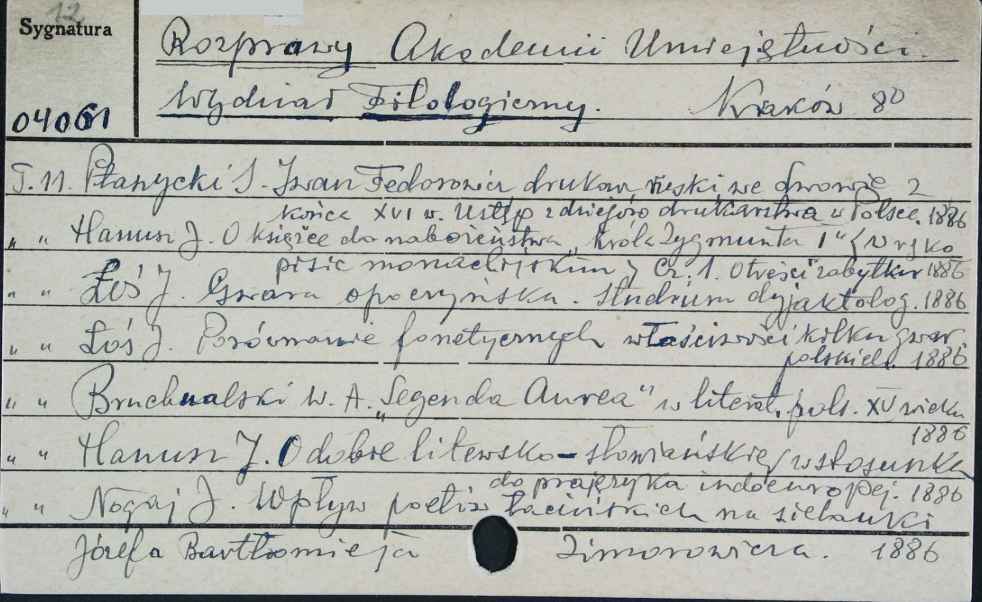 12
Sygnatura
Rozprawy Akademii Umiejętności.
Wydział Filologiczny. Kraków 8°
04061
T. 11. Ptaszycki S. Iwan Fedorowicz drukarz ruski we Lwowie z
końca XVI w. Ustęp z dziejów drukarstwa w Polsce. 1886
" " Hanusz J. O książce do nabożeństwa króla Zygmunta I" (w ręko
pisie monachijskim) Cz. 1. O treści zabytku 1886
" " Łoś J. Gwara opoczyńska. Studium dyjalektolog. 1886
" " Łoś J. Porównanie fonetycznych właściwości kilku gwar
polskich. 1886
" " Bruchnalski W. A. „Legenda Aurea" w literat. pols. XV wieku
1886
" " Hanusz J. O dobie litewsko-słowiańskiej w stosunku
do prajęzyka indoeuropej. 1886
" " Nogaj J. Wpływ poetów łacińskich na sielanki
Józefa Bartłomieja Zimorowicza. 1886